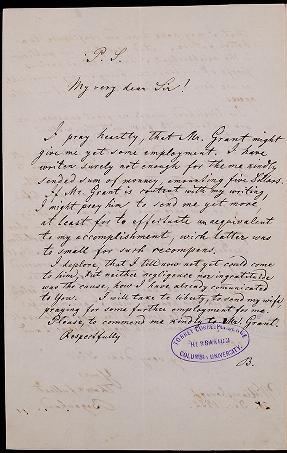 P. S.
My very dear Sir!
I pray heartly, that Mr. Grant might
give me yet some employment. I have
writen surely not enough for the me kindly
sended sum of money, amounting five Dollars.
If Mr. Grant is content with my writing
I might pray him to send me yet more
at least for to effectuate an aequivalent
to my accomplishment, wich latter was
to small for such recompens.
I deplore, that I till now not yet could come
to him, but neither negligence nor ingratitude
was the cause, how I have already comunicated
to You. I will take to liberty, to send my wife,
praying for some further employment for me.
Please, to commend me kindly to Mr. Grant.
Respectfully
B.
TORREY
HERBARIUM,
COLUMBIA UNIVERSITY.